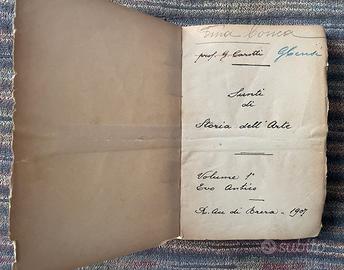 Ema Conca
prof. G. Carotti
Sunti
di
Storia dell'Arte
Volume 1°
Evo Antico
R. Acc di Brera - 1907
subito